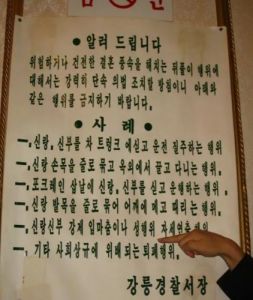 ● 알려 드립니다 ●
위험하거나 건전한 결혼 풍속을 해치는 뒤풀이 행위에
대해서는 강력히 단속 의법 조치할 방침이니 아래와
같은 행위를 금지하기 바랍니다.
● 사 례 ●
一, 신랑, 신부를 차 트렁크에 싣고 운전 질주하는 행위
一, 신랑 손목을 줄로 묶고 옥외에서 끌고 다니는 행위.
一, 포크레인 삽날에 신랑, 신부를 싣고 운행하는 행위.
一, 신랑 발목을 줄로 묶어 어깨에 메고 때리는 행위.
一, 신랑신부 강제 입마춤이나 성행위 자세연출
一, 기타 사회상규에 위배되는 퇴폐행위.
강릉경찰서장